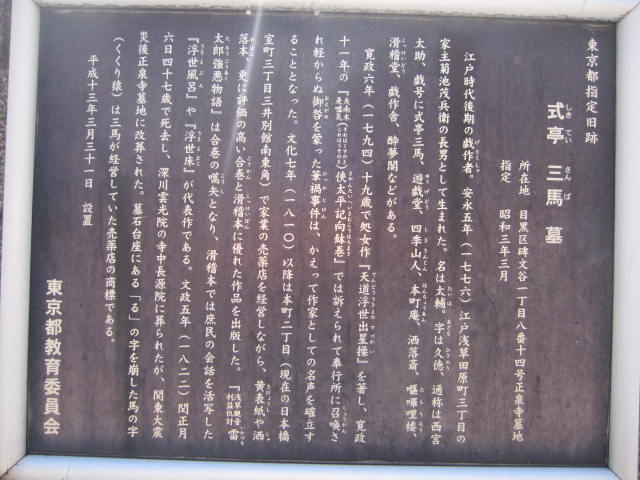 東京都指定旧跡
式亭 三馬 墓
所在地 目黒区碑文谷一丁目八番十四号正泉寺墓地
指定 昭和三年三月
江戸時代後期の戯作者。安永五年(一七七六)江戸浅草田原町三丁目の
家主菊池茂兵衛の長男として生まれた。名は太輔。字は久徳、通称は西宮
太助、戯号に式亭三馬、遊戯堂、四季山人、本町庵、洒落斎、哆囉哩楼、
滑稽堂、戯作舎、酔夢閣などがある。
寛政六年(一七九四)十九歳で処女作『天道浮世出星操』を著し、寛政
十一年の『侠太平記向鉢巻』では訴えられて奉行所に召喚さ
れ軽からぬ御咎を蒙った筆禍事件は、かえって作家としての名声を確立す
ることとなった。文化七年(一八一〇)以降は本町二丁目(現在の日本橋
室町二丁目三井別館南東角)で家業の売薬店を経営しながら、黄表紙や洒
落本、更に評価の高い合巻と滑稽本に優れた作品を出版した。『浅草観音利益仇討雷
太郎強悪物語』は合巻の嚆矢となり、滑稽本では庶民の会話を活写した
『浮世風呂』や『浮世床』が代表作である。文政五年(一八二二)閏正月
六日四十七歳で死去し、深川雲光院の寺中長源院に葬られたが、関東大震
災後正泉寺墓地に改葬された。墓石台座にある「る」の字を崩した馬の字
(くくり猿)は三馬が経営していた売薬店の商標である。
平成十三年三月三十一日 設置
東京都教育委員会